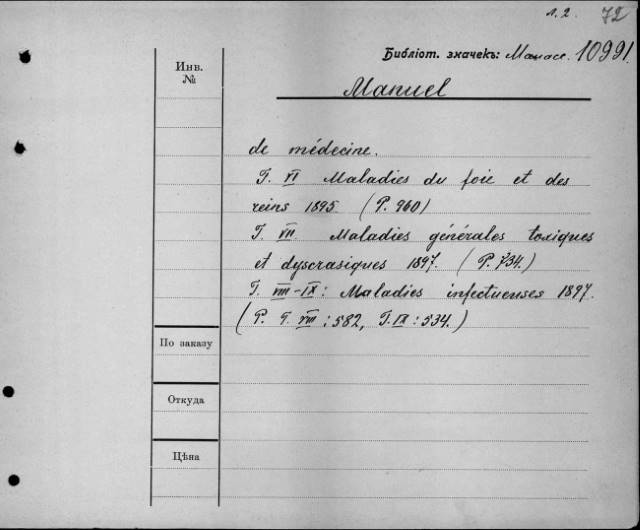 л. 2 72
Библіот. значекъ: Манасе. 10991.
Инв.
№
Manuel
de médecine.
T. VI Maladies du foie et des
reins 1895. (P. 960)
T. VII. Maladies générales toxiques
et dyscrasiques 1897. (P. 734.)
T. VIII-IX: Maladies infectueuses 1897.
(P. T. VIII: 582, T. IX: 534.)
По заказу
Откуда
Цѣна